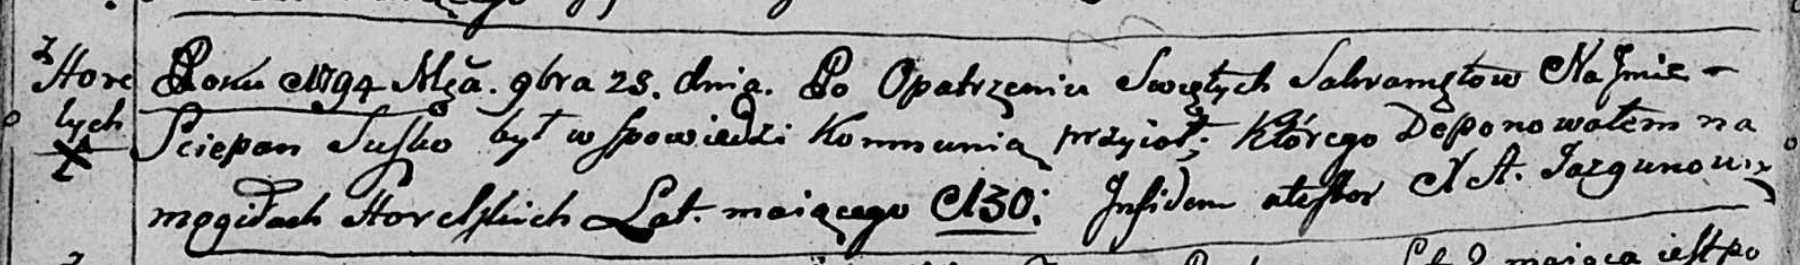 z
Hore
lych
Roku 1794 Mca. 9bra 28. dnia. Po Opatrzeniu Swiętych Sakramętow Na Jmie –
Sciepan Susko był w Spowiedzi Kommunią przyioł; którego Deponowałem na
mogiłach Horelskich Lat. maiącego 130: Infidem atestor X A. Jazgunowicz
maiąca iest po